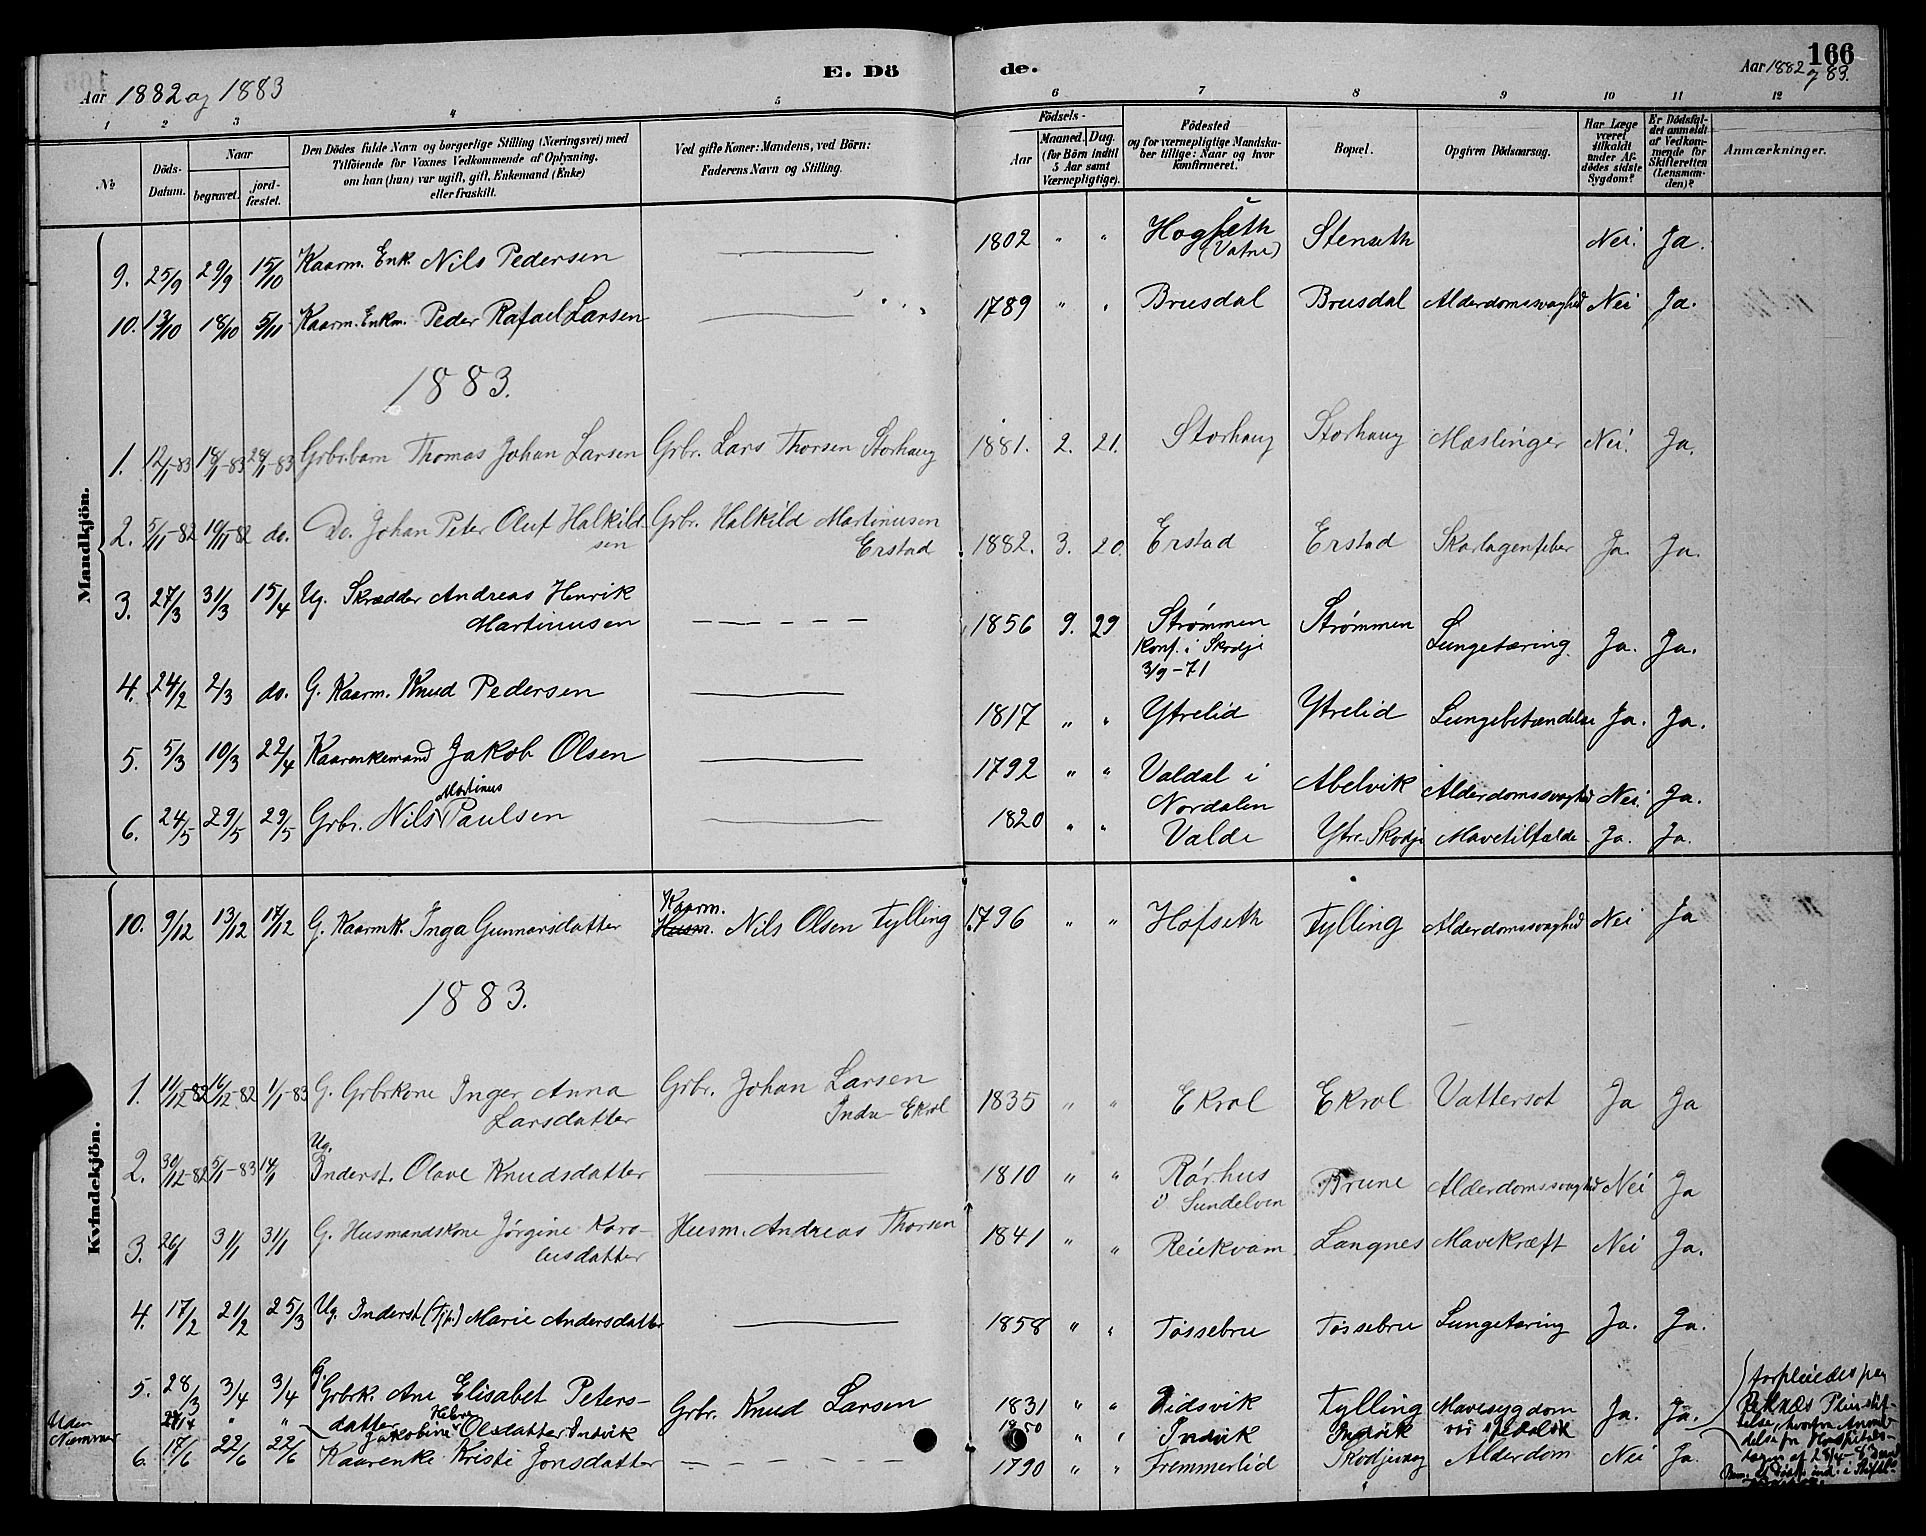 E. Dö de. 166
Aar 1882 og 1883
Aar 1882 og 83.
1 2 3 4 5 6 7 8 9 10 11 12
No
Döds-Datum.
Naar
begravet.
jord-fæstet.
Den Dödes fulde Navn og borgerlige Stilling (Næringsvei) med
Tilföiende for Voxnes Vedkommende af Oplysning,
om han (hun) var ugift, gift, Enkemand (Enke)
eller fraskilt.
Ved gifte Koner: Mandens, ved Börn:
Faderens Navn og Stilling.
Födsels-
Aar
Maaned. Dag.
(for Börn indtil
5 Aar samt
Værnepligtige).
Födested
og for værnepligtige Mandska-
ber tillige: Naar og hvor
konfirmeret.
Bopæl.
Opgiven Dödsaarsag.
Har Læge
været
tilkaldt
under Af-
dödes sidste
Sygdom?
Er Dödsfal-
det anmeldt
af Vedkom-
mende for
Skifteretten
(Lensman-
den)?
Anmærkninger.
Mandkjön.
9. 25/9 29/9 15/10 Kaarm. Enk. Nils Pedersen 1802 " " Hogseth (Vatne) Stenseth Nei. Ja.
10. 13/10 18/10 5/11 Kaarm. Enkm. Peder Rafael Larsen 1789 " " Brusdal Brusdal Alderdomssvaghed Nei Ja.
1883.
1. 12/1-83 18/1-83 28/1-83 Grbr.barn Thomas Johan Larsen Grbr. Lars Thorsen Storhaug 1881. 2. 21. Storhaug Storhaug Mæslinger Nei. Ja.
2. 5/11-82 10/11-82 do. Do. Johan Peter Oluf Halkild-sen Grbr. Halkild Martinusen Erstad 1882. 3. 20. Erstad Erstad Skarlagenfeber Ja. Ja.
3. 27/3 31/3 15/4 Ug. Skrædder Andreas Henrik Martinusen 1856 9. 29 Strømmen Konf. i Skodje 3/9-71 Strømmen Lungetæring Ja. Ja.
4. 24/2 2/3 do. G. Kaarm. Knud Pedersen 1817 " " Ytrelid Ytrelid Lungebetændelse Ja. Ja.
5. 5/3 10/3 22/4 Kaarenkemand Jakob Olsen 1792 " " Valdal i Nordalen Abelvik Alderdomssvaghed Nei. Ja.
6. 24/5 29/5 29/5 Grbr. Nils Martinus Paulsen 1820 " " Valde Ytre-Skodje Mavetilfælde Ja. Ja.
Kvindekjön.
10. 9/12 13/12 17/12 G. Kaarmk. Inga Gunnarsdatter Kaarm. Husm. Nils Olsen Fylling 1796 " " Hofseth Fylling Alderdomssvaghed Nei Ja
1883.
1. 11/12-82 16/12-82 1/1-83 G. Grbrkone Inger Anna Larsdatter Grbr. Johan Larsen Indre Ekrol 1835 " " Ekrol Ekrol Vattersot Ja Ja
2. 30/12-82 5/1-83 14/1 Ug. Inderst. Olave Knudsdatter 1810 " " Rørhus i Sundelven Brune Alderdomssvaghed Nei Ja
3. 26/1 31/1 31/1 G. Husmandskone Jørgine Karo-lusdatter Husm. Andreas Thorsen 1841 " " Reiekvam Langnes Mavekræft Nei Ja.
4. 17/2 21/2 25/3 Ug. Inderst (Tj.) Marie Andersdatter 1858 " " Tøssebru Tøssebru Lungetæring Ja. Ja.
5. 28/3 3/4 3/4 G. Grbrk. Ane Elisabet Peters-datter Grbr. Knud Larsen 1831 " " Eidsvik Fylling Mavesygdom Ja. Ja.
Uden Nummer " " Jakobine Olsdatter Indvik 1850 " " Indvik Indvik
6. 17/6 22/6 22/6 Kaarenke Kristi Jonsdatter 1790 " " Fremmerlid Skodjevaag Alderdom Nei Ja.
forpleiedes paa
Reknæs Pleiestif-
telse, hvorfra Anmel-
delse fra Hospitals-